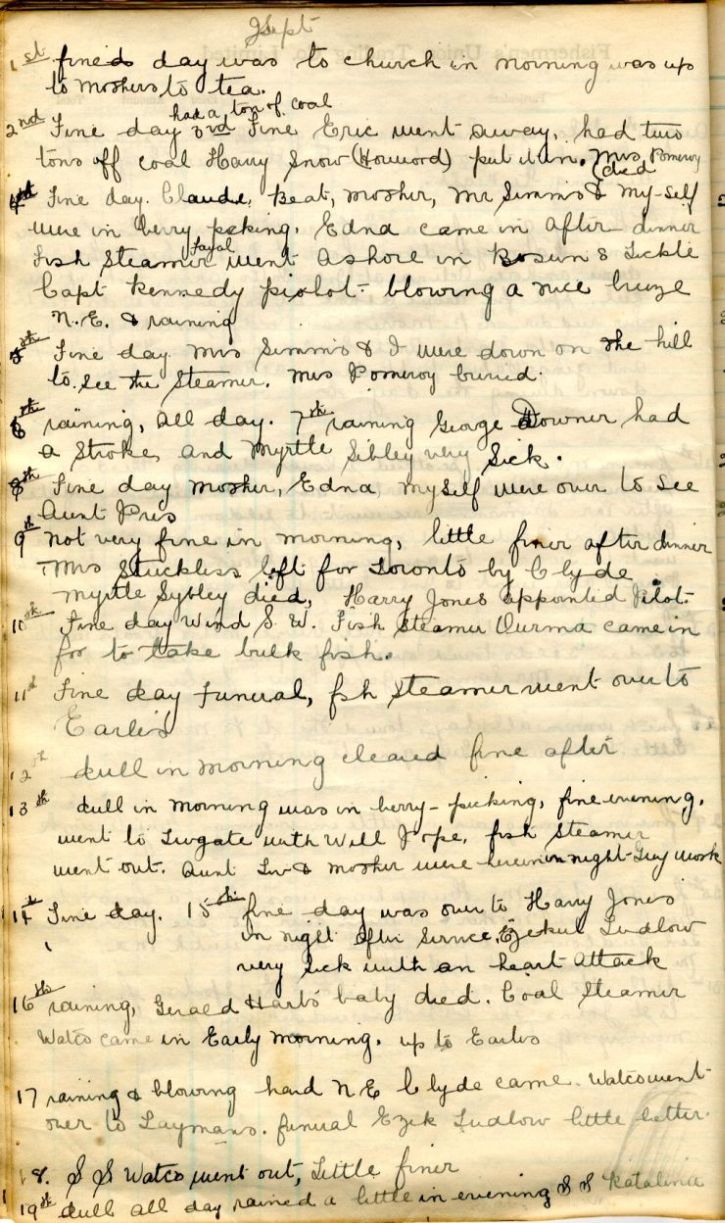 Sept
1st fine day was to church in morning was up
to Moshers to tea.
had a ton of coal
2nd Fine day 3rd Fine Eric went away, had two
tons off coal Harry Snow (Howord) put it in. Mrs Pomeroy
(died
4th Fine day. Claude, Beat, Mosher, Mr Simms & my-self
were in berry picking. Edna came in after dinner
Fish Steamer went Ashore in Bosun's Tickle
Capt Kennedy pilot - blowing a nice breeze
N.E. & raining
5th Fine day. Mrs Simms & I were down on the hill
to see the Steamer. Mrs Pomeroy buried.
6th raining, all day. 7th raining George Downer had
a Stroke, and Myrtle Sibley very Sick.
8th Fine day Mosher, Edna, myself were over to see
Aunt Pris
9th not very fine in morning, little finer after dinner
Mrs Stuckless left for Toronto by Clyde
Myrtle Sybley died, Harry Jones appointed Pilot.
10th Fine day Wind S.W. Fish Steamer came in
for to take bulk fish.
11th Fine day Funeral, fsh Steamer went over to
Earlis
12th dull in morning cleared fine after
13th dull in morning was in berry-picking, fine evening.
went to with Will Pope, fish Steamer
went out. Aunt Liv & Mosher were here in night work
14th Fine day. 15th fine day was over to Harry Jones
in night after Service, Ezekiel Ludlow
very Sick with an heart Attack
16th raining, Gerald Harbs' baby died. Coal Steamer
Watco came in Early morning. up to Earlis
17 raining & blowing hard N E Clyde came. Watco went
over to Laymans. funeral Ezek Ludlow little better.
18. S S Watco went out, Little finer
19th dull all day rained a little in evening S S Katalina